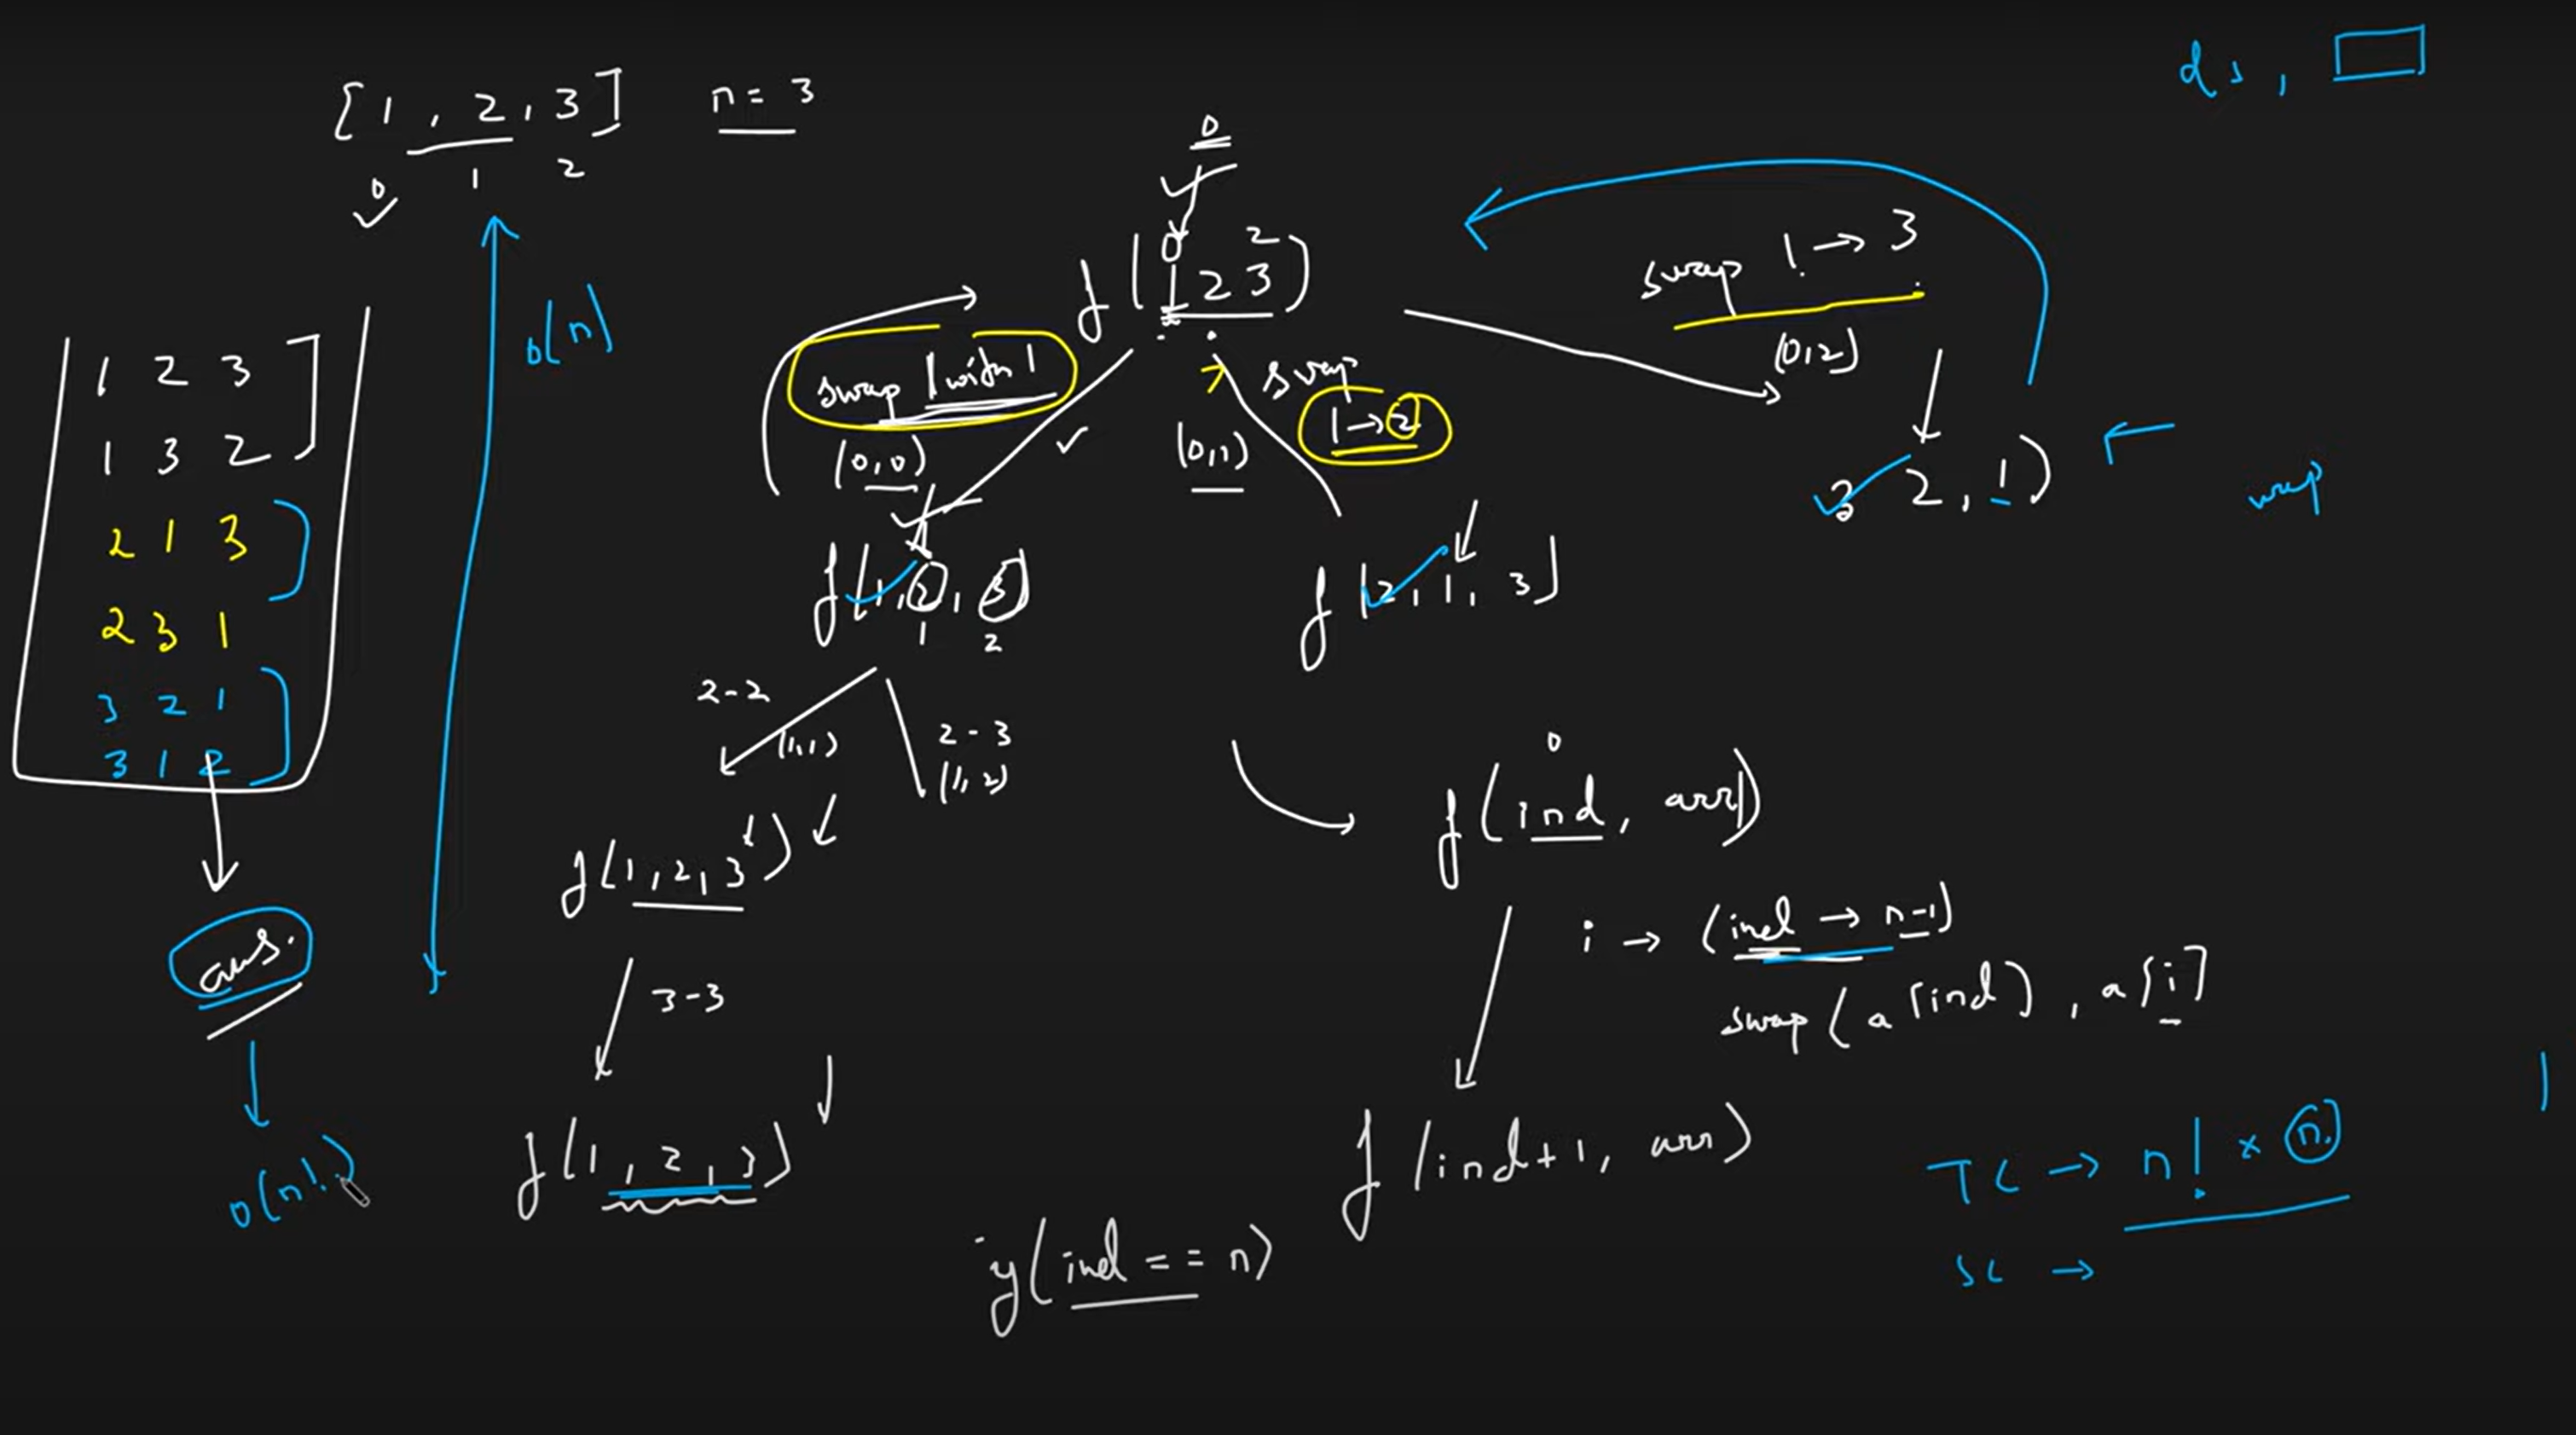 [1, 2, 3] n = 3
0 1 2
ds,
1 2 3
1 3 2
2 1 3
2 3 1
3 2 1
3 1 2
ans.
O(n!)
O(n)
0
0 2
f(1 2 3)
swap 1 with 1
(0,0)
swap
1→2
(0,1)
swap 1→3
(0,2)
f(1, 2, 3)
1 2
f(2, 1, 3)
3 2, 1)
2-2
(1,1)
2-3
(1,2)
f(1, 2, 3)
3-3
f(1, 2, 3)
0
f(ind, arr)
i → (ind → n-1)
swap(a[ind], a[i]
f(ind+1, arr)
if(ind == n)
TC → n! × n
SC →